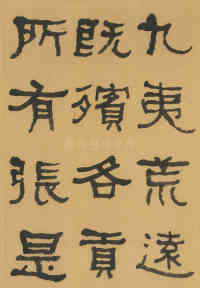 九夷荒遠
既殯各貢
所有張是